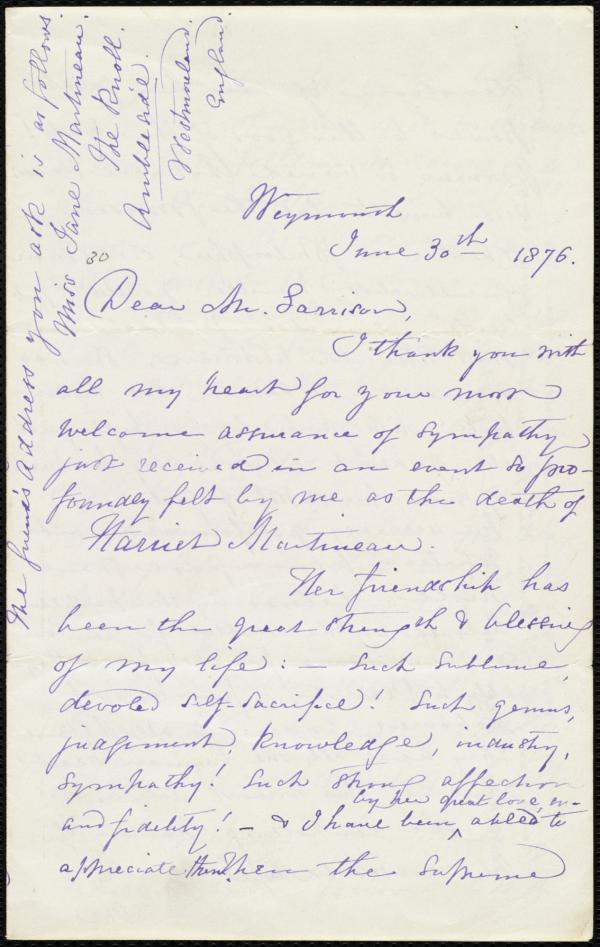 The friend's Address you ask is as follows
Miss Jane Martineau.
The Knoll.
Ambleside.
Westmoreland.
England
Weymouth
June 30th 1876.
30
Dear Mr. Garrison,
I thank you with
all my heart for your most
welcome assurance of sympathy
just received in an event so pro-
foundly felt by me as the death of
Harriet Martineau.
Her friendship has
been the great strength & blessing
of my life: — Such sublime,
devoted self-sacrifice! Such genius,
judgement, knowledge, industry,
sympathy! Such strong affection
and fidelity! — & I have been ^ by her great love, en-
abled to
appreciate them. Then the supreme